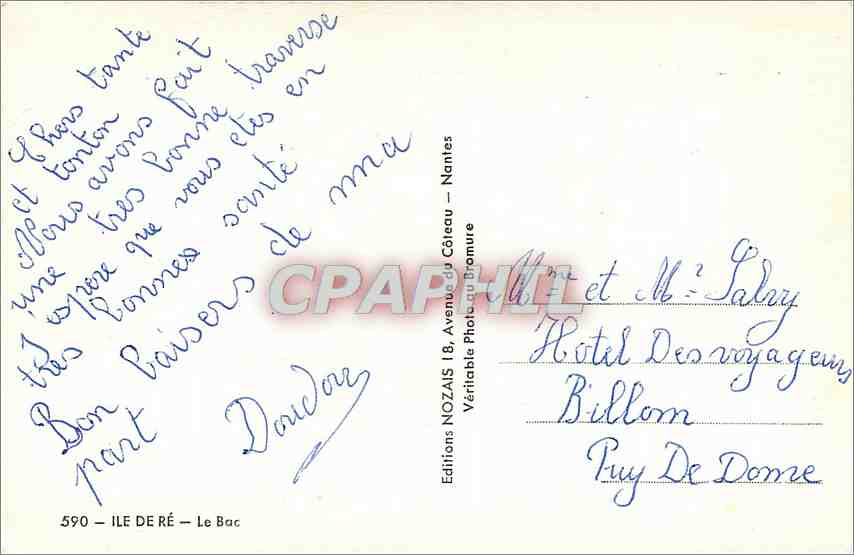 Chers tante
et tonton
Nous avons fait
une tres bonne traverse
J'espere que vous etes en
tres bonnes santé
Bon baisers de ma
part
Doudou
Editions NOZAIS 18, Avenue du Côteau — Nantes
Véritable Photo au Bromure
CPAPHIL
Mme et Mr Salvy
Hotel Des voyageurs
Billom
Puy De Dome
590 — ILE DE RÉ — Le Bac